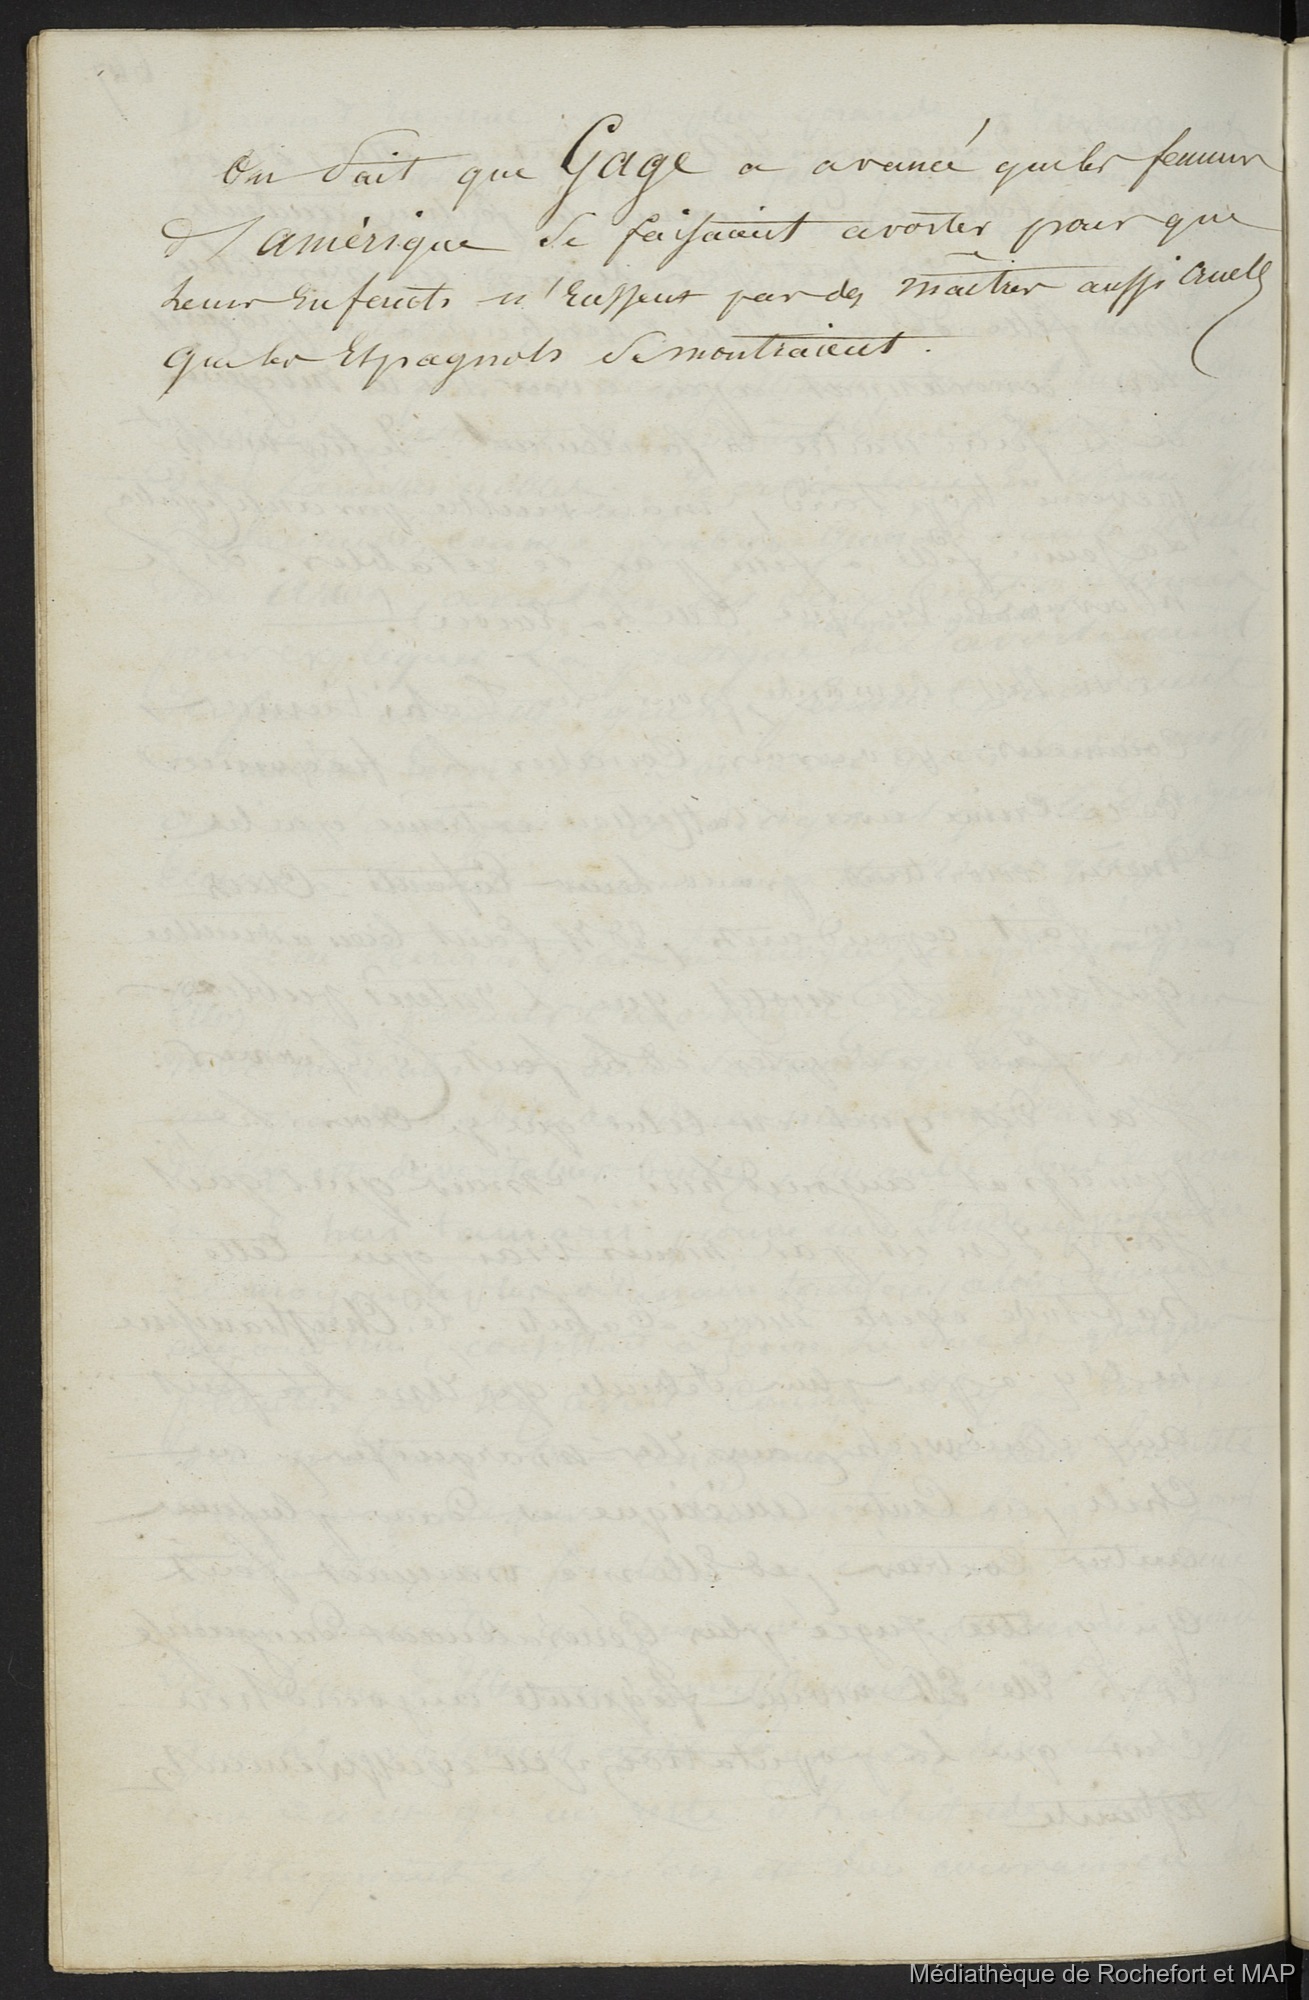 On sait que Gage a avancé que les femmes
d'amérique se faisaient avorter pour que
leurs Enfants n'Eussent pas des maîtres aussi cruels
que les Espagnols se montraient.
Médiathèque de Rochefort et MAP